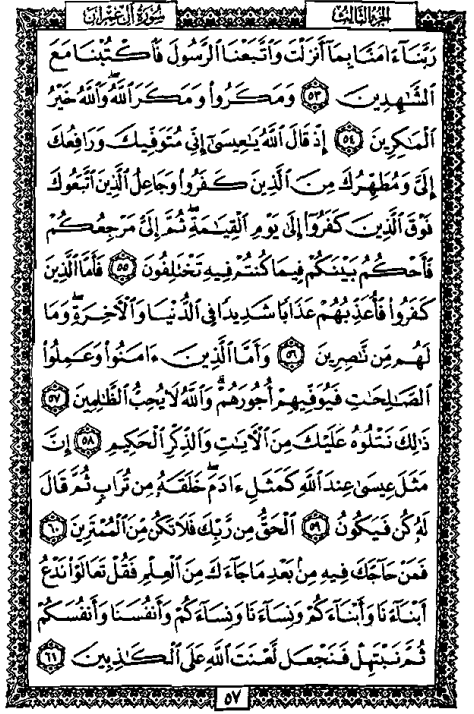 الجزء الثالث
سورة آل عمران
رَبَّنَآ ءَامَنَّا بِمَآ أَنزَلْتَ وَٱتَّبَعْنَا ٱلرَّسُولَ فَٱكْتُبْنَا مَعَ
ٱلشَّٰهِدِينَ ﴿٥٣﴾ وَمَكَرُوا۟ وَمَكَرَ ٱللَّهُ ۖ وَٱللَّهُ خَيْرُ
ٱلْمَٰكِرِينَ ﴿٥٤﴾ إِذْ قَالَ ٱللَّهُ يَٰعِيسَىٰٓ إِنِّى مُتَوَفِّيكَ وَرَافِعُكَ
إِلَىَّ وَمُطَهِّرُكَ مِنَ ٱلَّذِينَ كَفَرُوا۟ وَجَاعِلُ ٱلَّذِينَ ٱتَّبَعُوكَ
فَوْقَ ٱلَّذِينَ كَفَرُوٓا۟ إِلَىٰ يَوْمِ ٱلْقِيَٰمَةِ ۖ ثُمَّ إِلَىَّ مَرْجِعُكُمْ
فَأَحْكُمُ بَيْنَكُمْ فِيمَا كُنتُمْ فِيهِ تَخْتَلِفُونَ ﴿٥٥﴾ فَأَمَّا ٱلَّذِينَ
كَفَرُوا۟ فَأُعَذِّبُهُمْ عَذَابًا شَدِيدًا فِى ٱلدُّنْيَا وَٱلْءَاخِرَةِ ۖ وَمَا
لَهُم مِّن نَّٰصِرِينَ ﴿٥٦﴾ وَأَمَّا ٱلَّذِينَ ءَامَنُوا۟ وَعَمِلُوا۟
ٱلصَّٰلِحَٰتِ فَيُوَفِّيهِمْ أُجُورَهُمْ ۗ وَٱللَّهُ لَا يُحِبُّ ٱلظَّٰلِمِينَ ﴿٥٧﴾
ذَٰلِكَ نَتْلُوهُ عَلَيْكَ مِنَ ٱلْءَايَٰتِ وَٱلذِّكْرِ ٱلْحَكِيمِ ﴿٥٨﴾ إِنَّ
مَثَلَ عِيسَىٰ عِندَ ٱللَّهِ كَمَثَلِ ءَادَمَ ۖ خَلَقَهُۥ مِن تُرَابٍ ثُمَّ قَالَ
لَهُۥ كُن فَيَكُونُ ﴿٥٩﴾ ٱلْحَقُّ مِن رَّبِّكَ فَلَا تَكُن مِّنَ ٱلْمُمْتَرِينَ ﴿٦٠﴾
فَمَنْ حَآجَّكَ فِيهِ مِنۢ بَعْدِ مَا جَآءَكَ مِنَ ٱلْعِلْمِ فَقُلْ تَعَالَوْا۟ نَدْعُ
أَبْنَآءَنَا وَأَبْنَآءَكُمْ وَنِسَآءَنَا وَنِسَآءَكُمْ وَأَنفُسَنَا وَأَنفُسَكُمْ
ثُمَّ نَبْتَهِلْ فَنَجْعَل لَّعْنَتَ ٱللَّهِ عَلَى ٱلْكَٰذِبِينَ ﴿٦١﴾
٥٧